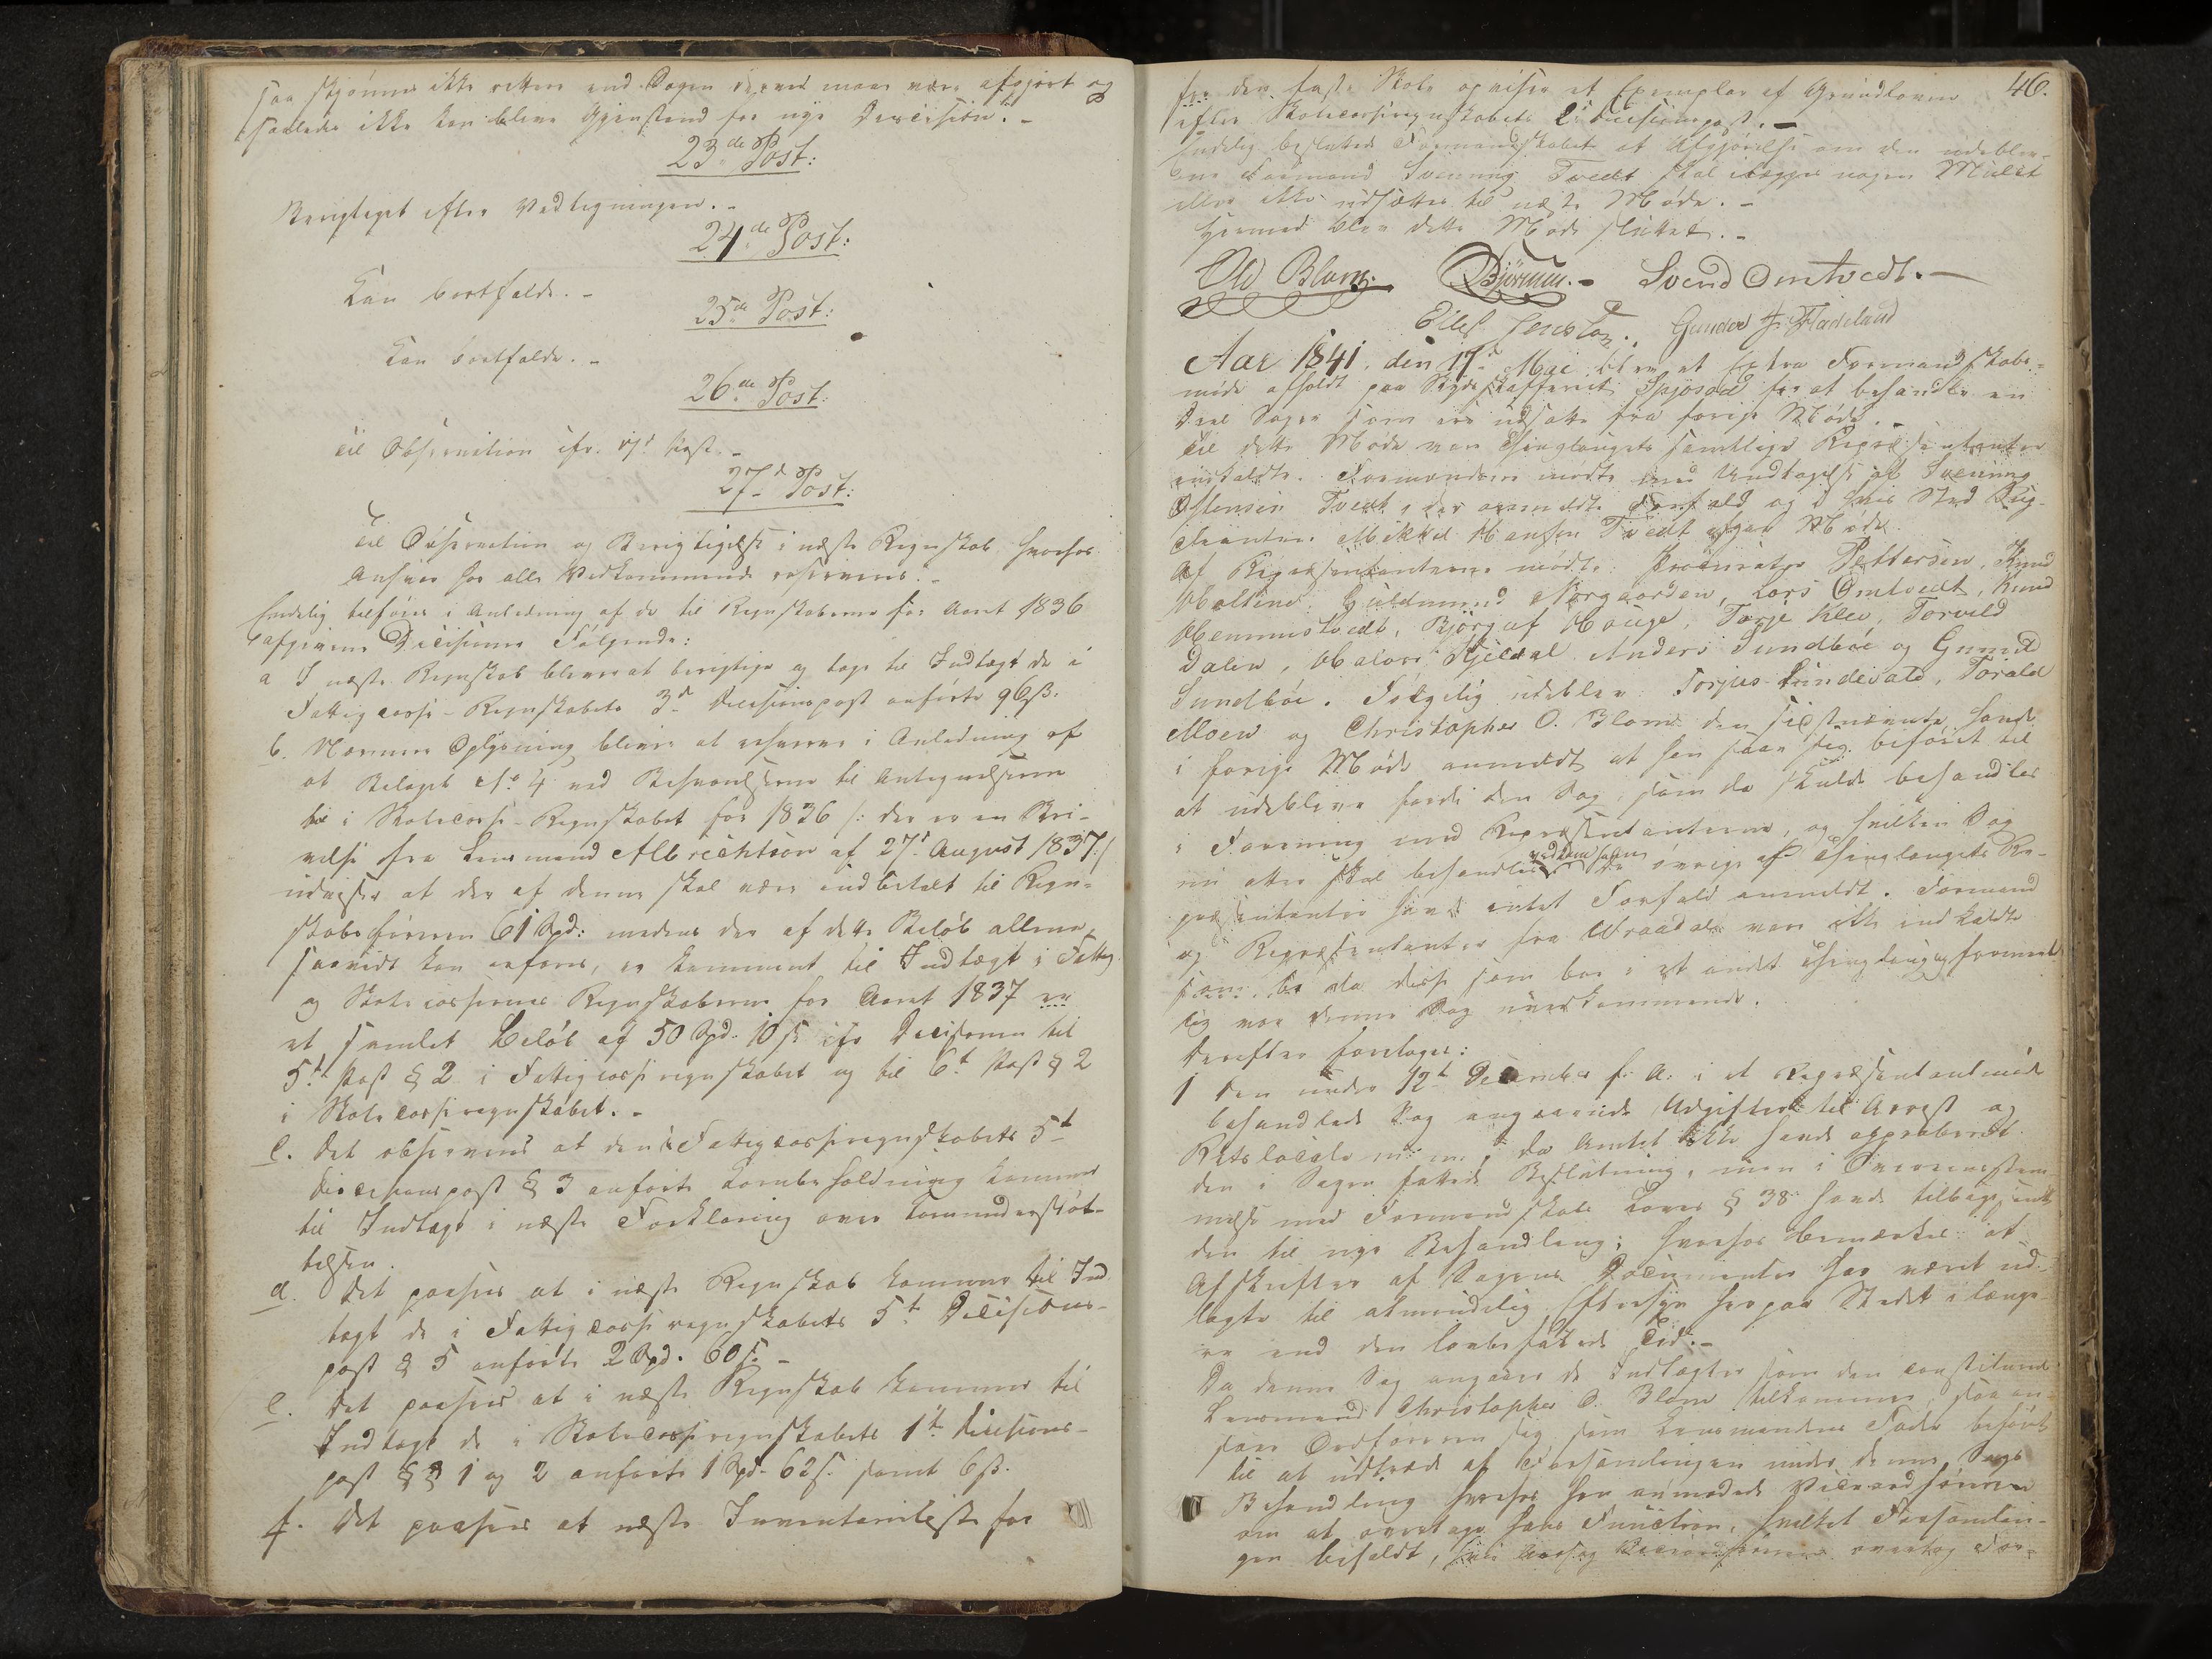 saa skjønnes ikke rettere end Sagen derved maa være afgjort og
saaledes ikke kan blive Gjenstand for nye Decision. -
23de Post:
Berigtiget efter Vedtegningen. -
24de Post:
Kan bortfalde. -
25de Post:
Kan bortfalde. -
26de Post:
Til Observation cfr. Post. -
27d Post:
Til Observation og Berigtigelse i næste Regnskab hvorfor
Ansvar for alle Vedkommende reserveres. -
Endelig tilføies i Anledning af de til Regnskaberne for Aaret 1836
afgivne Decisioner Følgende:
a I næste Regnskab bliver at berigtige og tage til Indtægt de i
Fattigcasse-Regnskabets 3d Decisionspost anførte 96ß.
b. Nærmere Oplysning bliver at erhverve i Anledning af
at Belaget No 4 ved Besvarelserne til Antegnelserne
til i Skolecasse-Regnskabet for 1836 /: der er en Skri-
velse fra Lensmand Albrichtson af 27d August 1837:/
udviser at der af denne skal være indbetalt til Regn-
skabsføreren 61 Spd: medens der af dette Beløb allene,
saavidt kan erfares, er kommet til Indtægt i Fattig
og Skolecassernes Regnskaberne for Aaret 1837 er
et samlet Beløb af 50 Spd. 10 ß cfr Decisionen til
5t Post § 2 i Fattigcasseregnskabet og til 6t Post § 2
i Skolecasseregnskabet. -
c. Det observeres at den i Fattigcasseregnskabets 5t
Decisionspost § 3 anførte Kornbeholdning kommer
til Indtægt i næste Forklaring over Kornunderstøt-
telsen.
d. Det paasees at i næste Regnskab kommer til Ind
tægt de i Fattigcasseregnskabets 5t Decisions-
post § 5 anførte 2 Spd. 60 ß. -
e. Det paasees at i næste Regnskab kommer til
Indtægt de i Skolecasseregnskabets 1te Decisions-
post §§ 1 og 2 anførte 1 Spd. 62ß. samt 6ß.
f. Det paasees at næste Inventarieliste for
46.
for den faste Skole opviser et Exemplar af Grundloven
efter Skolecasseregnskabets 2d Decisionspost. -
Endelig besluttede Formandskabet at Afgjørelse om den udeblev-
ne Formand Svenung Tvedt skal ilægges nogen Mulct
eller ikke udsættes til næste Møde. -
Hermed blev dette Møde sluttet. -
Ol Blom. Björnun. - Svend Omtvedt. -
Eilef Jenssøn. Gunder J. Fladeland
Aar 1841. den 17d Mai blev et Extra Formandskabs-
møde afholdt paa Skydskafferiet Spjosod for at behandle en
Deel Sager som ere udsatte fra forrige Møde. -
Til dette Møde var Thinglaugets samtlige Repræsentanter
indkaldte. Formændene mødte med Undtagelse af Svenung
Ostensen Tvedt, der anmeldte Forfald og i hvis Sted Sup-
pleanten Mikkel Hansen Tvedt gav Møde.
Af Repræsentanterne mødte: Procurator Pettersen, Knud
Moltene, Guldmund Norgaarden, Lars Omtvedt, Knud
Hemmestvedt, Bjørguf Hauge, Torje Klev, Torvild
Dalen, Halvor Kjeldal Anders Sundbøe og Gunuld
Sundbøe. Følgelig udeblev Torjus Lindevald, Torald
Moen og Christopher O. Blom den sidstnævnte havde
i forrige Møde anmeldt at han saae sig beføiet til
at udeblive fordi den Sag, som da skulde behandles
i Forening med Repræsentanterne, og hvilken Sag
nu atter skal behandles vedkom ham de øvrige af Thinglaugets Re-
præsentanter have intet Forfald anmeldt. Formænd
og Repræsentanter fra Wraadal var ikke indkaldte
som da disse som boe i et andet Thinglaug forment-
lig var denne Sag uvedkommende.
Derefter foretoges:
1 Den under 12t December f. A. i et Repræsentantmøde
behandlede Sag angaaende Udgifter til Arrest og
Retslocale m: m:, da Amtet ikke havde approberet
den i Sagen fattede Beslutning, men i Overensstem
melse med Formandskabs Lovens § 38 havde tilbagesendt
den til nye Behandling; hvorfor bemærkes at
Afskrifter af Sagens Documenter har været ud-
lagte til almindelig Eftersyn her paa Stedet i længe-
re end den lovbefalede Tid. -
Da denne Sag angaaer de Indtægter som den constituerede
Lensmand Christopher O. Blom tilkommer, saa an-
saae Ordføreren sig som Lensmandens Fader beføiet
til at udtræde af Forsamlingen under denne Sags
Behandling hvorfor han anmodede Viceordføreren
om at overtage hans Function, hvilket Forsamlin-
gen bifaldt, overtog For-